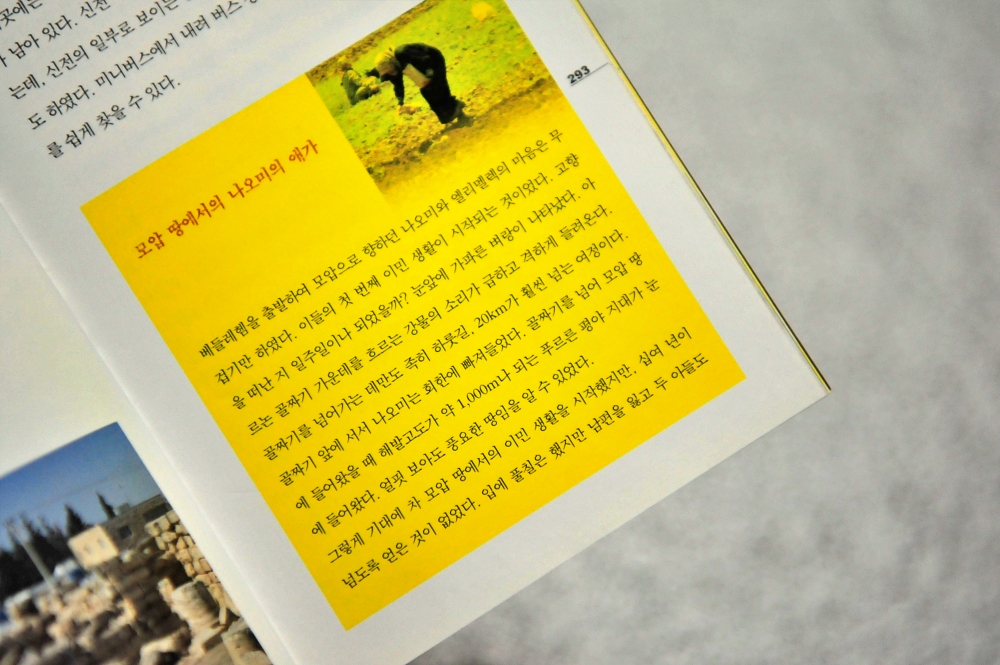 곳에는
남아 있다. 신전
는데, 신전의 일부로 보이는
도 하였다. 미니버스에서 내려 버스
를 쉽게 찾을 수 있다.
293
모압 땅에서의 나오미의 애가
베들레헴을 출발하여 모압으로 향하던 나오미와 엘리멜렉의 마음은 무
겁기만 하였다. 이들의 첫 번째 이민 생활이 시작되는 것이었다. 고향
을 떠난 지 일주일이나 되었을까? 눈앞에 가파른 벼랑이 나타났다. 아
르논 골짜기 가운데를 흐르는 강물의 소리가 급하고 격하게 들려온다.
골짜기를 넘어가는 데만도 족히 하룻길, 20km가 훨씬 넘는 여정이다.
골짜기 앞에 서서 나오미는 회한에 빠져들었다. 골짜기를 넘어 모압 땅
에 들어왔을 때 해발고도가 약 1,000m나 되는 푸르른 평야 지대가 눈
에 들어왔다. 얼핏 보아도 풍요한 땅임을 알 수 있었다.
그렇게 기대에 차 모압 땅에서의 이민 생활을 시작했지만, 십여 년이
넘도록 얻은 것이 없었다. 입에 풀칠은 했지만 남편을 잃고 두 아들도